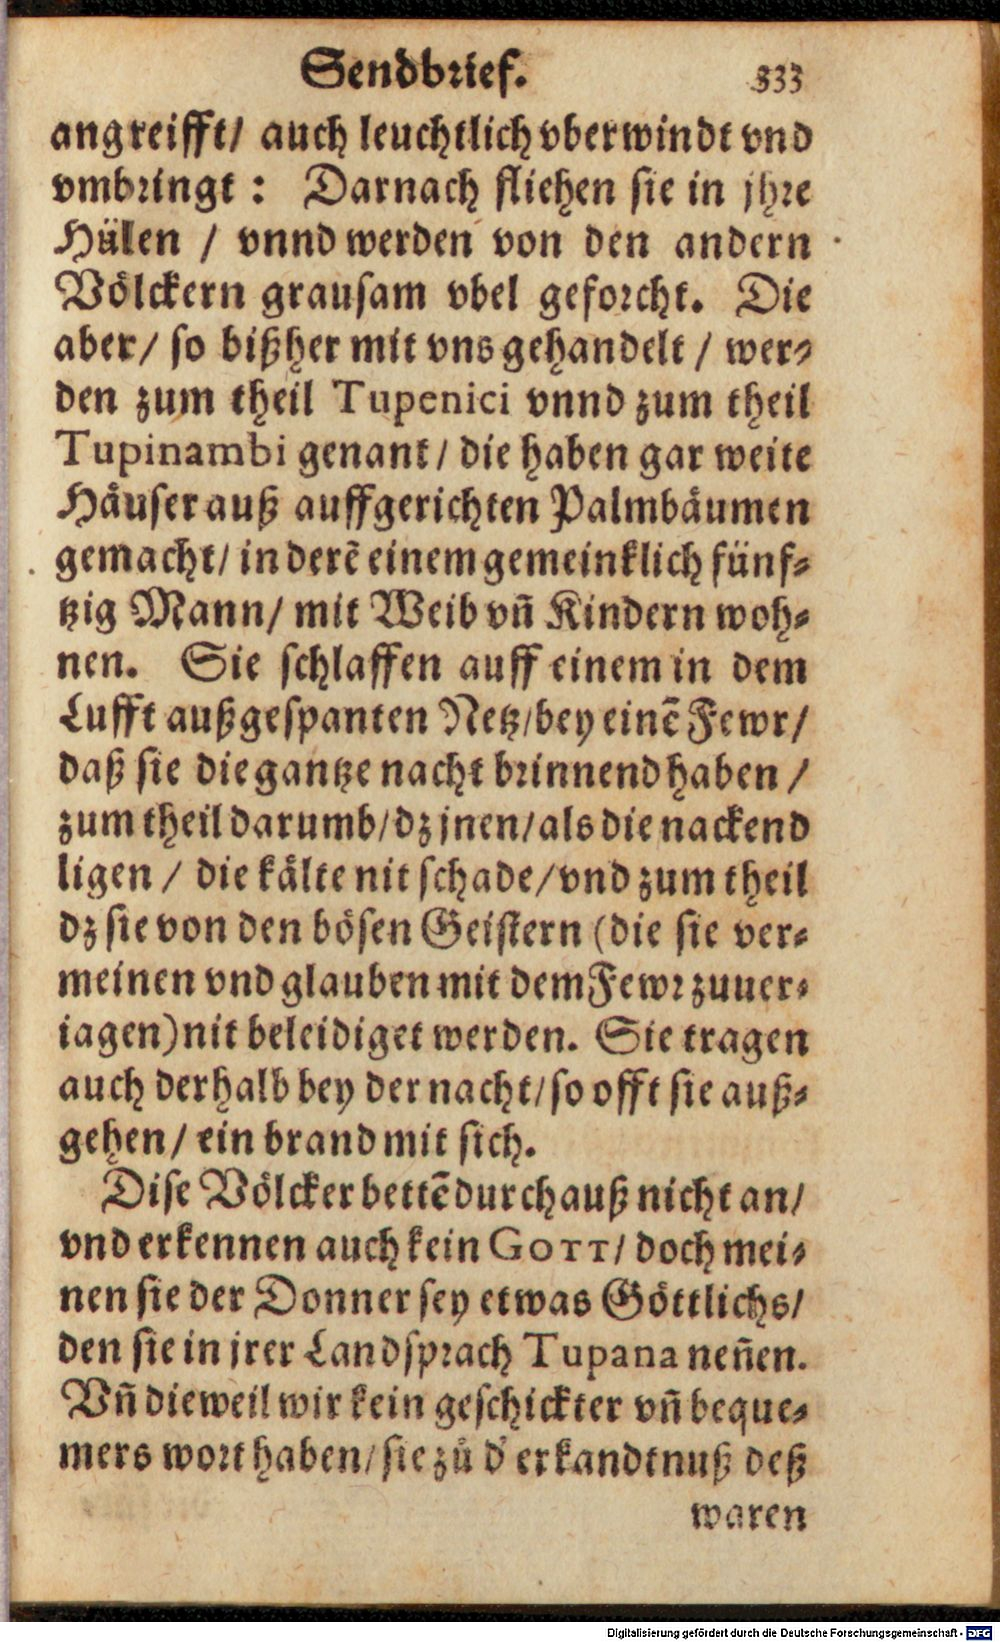 Sendbrief. 333
angreifft/ auch leuchtlich vberwindt vnd
vmbringt : Darnach fliehen sie in jhre
Hülen / vnnd werden von den andern
Völckern grausam vbel geforcht. Die
aber/ so bißher mit vns gehandelt / wer⸗
den zum theil Tupenici vnnd zum theil
Tupinambi genant/ die haben gar weite
Häuser auß auffgerichten Palmbäumen
gemacht/ in derẽ einem gemeinklich fünf⸗
tzig Mann/ mit Weib vñ Kindern woh⸗
nen. Sie schlaffen auff einem in dem
Lufft außgespanten Netz/ bey einẽ Fewr/
daß sie die gantze nacht brinnend haben /
zum theil darumb/ dz jnen/ als die nackend
ligen / die kälte nit schade/ vnd zum theil
dz sie von den bösen Geistern (die sie ver⸗
meinen vnd glauben mit dem Fewr zuuer⸗
iagen) nit beleidiget werden. Sie tragen
auch derhalb bey der nacht/ so offt sie auß⸗
gehen/ ein brand mit sich.
Dise Völcker bettẽ durchauß nicht an/
vnd erkennen auch kein GOTT/ doch mei⸗
nen sie der Donner sey etwas Göttlichs/
den sie in jrer Landsprach Tupana neñen.
Vñ dieweil wir kein geschickter vñ beque⸗
mers wort haben/ sie zů d' erkandtnuß deß
waren
Digitalisierung gefördert durch die Deutsche Forschungsgemeinschaft - DFG